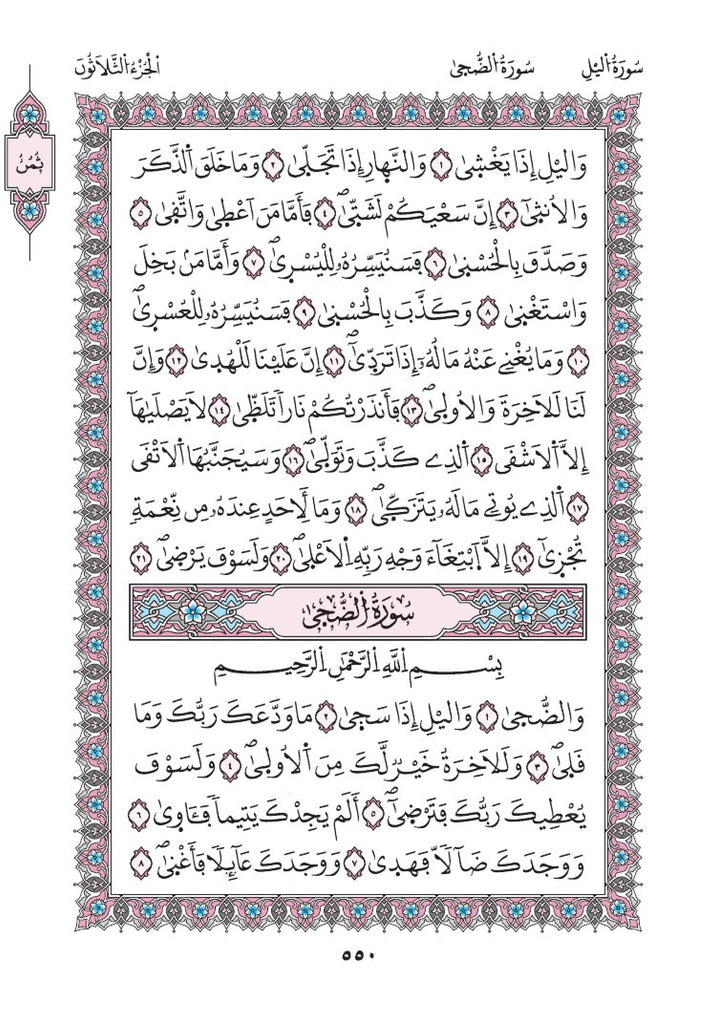 سُورَةُ اليْلِ
سُورَةُ الضُّحىٰ
الجُزْءُ الثَّلَاثُونَ
ثُمُنُ
وَاليْلِ إِذَا يَغْشىٰ ١ وَالنَّهارِ إِذَا تَجَلّىٰ ٢ وَمَا خَلَقَ الذَّكَرَ
وَالُانثىٰ ٣ إِنَّ سَعْيَكُمْ لَشَتّىٰ ٤ فَأَمَّا مَنَ اَعْطىٰ وَاتَّقىٰ ٥
وَصَدَّقَ بِالْحُسْنىٰ ٦ فَسَنُيَسِّرُهُۥ لِلْيُسْرىٰ ٧ وَأَمَّا مَنۢ بَخِلَ
وَاسْتَغْنىٰ ٨ وَكَذَّبَ بِالْحُسْنىٰ ٩ فَسَنُيَسِّرُهُۥ لِلْعُسْرىٰ
١٠ وَمَا يُغْنِے عَنْهُ مَالُهُۥٓ إِذَا تَرَدّىٰ ١١ إِنَّ عَلَيْنَا لَلْهُدىٰ ١٢ وَإِنَّ
لَنَا لَلَاخِرَةَ وَالُاولىٰ ١٣ فَأَنذَرْتُكُمْ نَاراً تَلَظّىٰ ١٤ لَا يَصْلَيٰهَآ
إِلَّا اَلَاشْقَى ١٥ اَلذِے كَذَّبَ وَتَوَلّىٰ ١٦ وَسَيُجَنَّبُهَا اَلَاتْقَى
١٧ اَلذِے يُوتِے مَالَهُۥ يَتَزَكّىٰ ١٨ وَمَا لَأِحَدٍ عِندَهُۥ مِن نِّعْمَةٍ
تُجْزىٰٓ ١٩ إِلَّا اَبْتِغَآءَ وَجْهِ رَبِّهِ اِلَاعْلىٰ ٢٠ وَلَسَوْفَ يَرْضىٰ ٢١
سُورَةُ الضُّحىٰ
بِسْمِ اِللَّهِ اِلرَّحْمَٰنِ اِلرَّحِيمِ
وَالضُّحىٰ ١ وَاليْلِ إِذَا سَجىٰ ٢ مَا وَدَّعَكَ رَبُّكَ وَمَا
قَلىٰ ٣ وَلَلَاخِرَةُ خَيْرٌ لَّكَ مِنَ اَلُاولىٰ ٤ وَلَسَوْفَ
يُعْطِيكَ رَبُّكَ فَتَرْضىٰٓ ٥ أَلَمْ يَجِدْكَ يَتِيماً فَـَٔاوىٰ ٦
وَوَجَدَكَ ضَآلّاً فَهَدىٰ ٧ وَوَجَدَكَ عَآئِلًا فَأَغْنىٰ ٨
٥٥٠